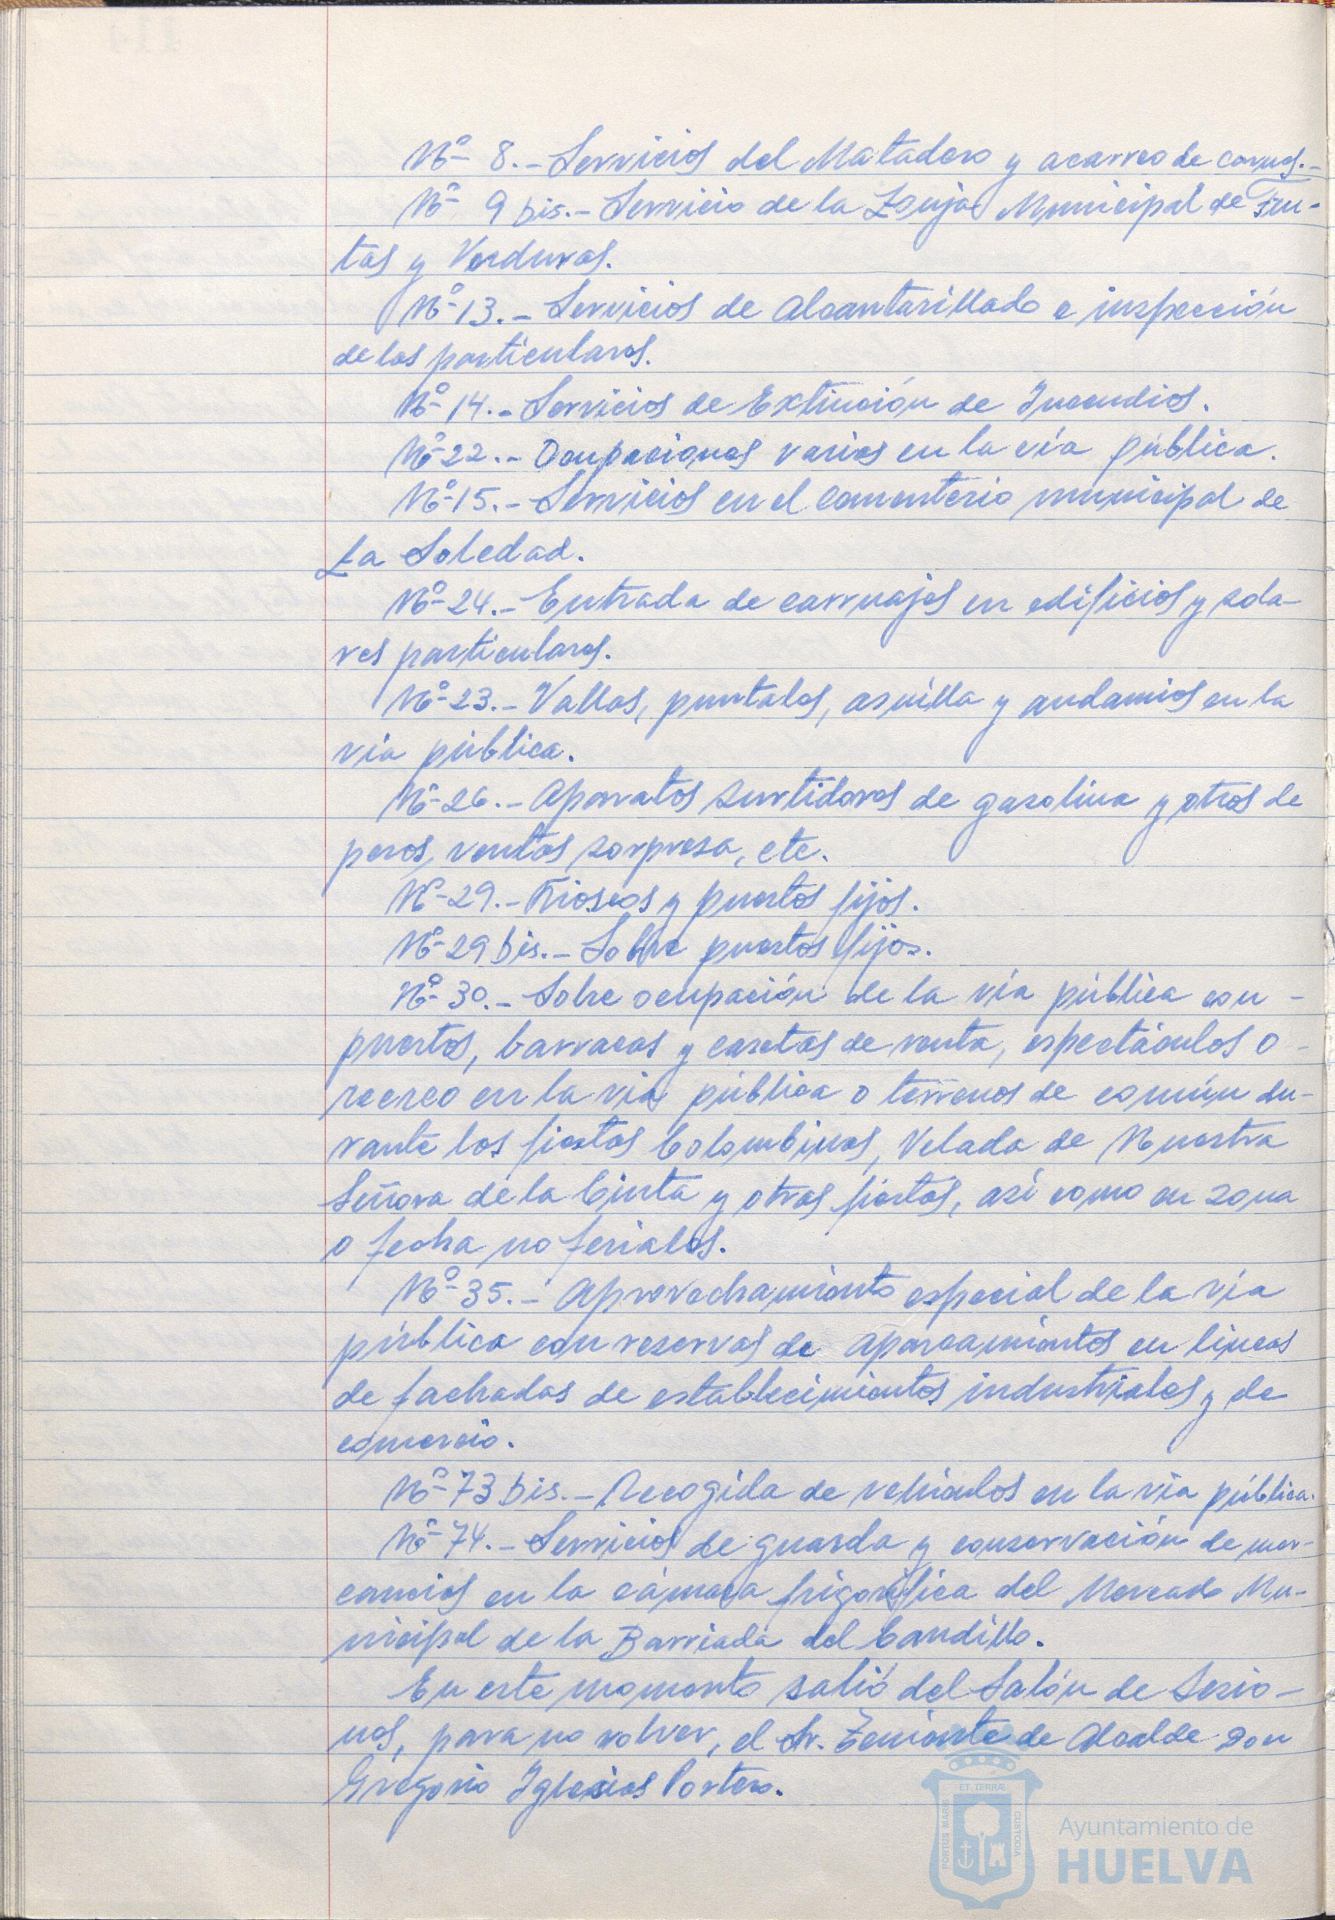 Nº 8.- Servicios del Matadero y acarreo de carnes.-
Nº 9 bis.- Servicio de la Lonja Municipal de Fru-
tas y Verduras.
Nº 13.- Servicios de Alcantarillado e inspección
de los particulares.
Nº 14.- Servicios de Extinción de Incendios.
Nº 22.- Ocupaciones varias en la vía pública.
Nº 15.- Servicios en el Cementerio municipal de
La Soledad.
Nº 24.- Entrada de carruajes en edificios y sola-
res particulares.
Nº 23.- Vallas, puntales, asnilla y andamios en la
vía pública.
Nº 26.- Aparatos surtidores de gasolina y otros de
peros, ventas sorpresa, etc.
Nº 29.- Kioscos y puestos fijos.
Nº 29 bis.- Sobre puestos fijos.
Nº 30.- Sobre ocupación de la vía pública con -
puestos, barracas y casetas de venta, espectáculos o -
recreo en la vía pública o terrenos de común du-
rante las fiestas Colombinas, Velada de Nuestra
Señora de la Cinta y otras fiestas, así como en zona
o fecha no feriales.
Nº 35.- Aprovechamiento especial de la vía
pública con reservas de aparcamientos en líneas
de fachadas de establecimientos industriales y de
comercio.
Nº 73 bis.- Recogida de vehículos en la vía pública.
Nº 74.- Servicios de guarda y conservación de mer-
cancías en la cámara frigorífica del Mercado Mu-
nicipal de la Barriada del Caudillo.
En este momento salió del Salón de Sesio-
nes, para no volver, el Sr. Teniente de Alcalde Don
Gregorio Iglesias Portero.
PORTUS MARIS
ET TERRÆ
CUSTODIA
Ayuntamiento de
HUELVA